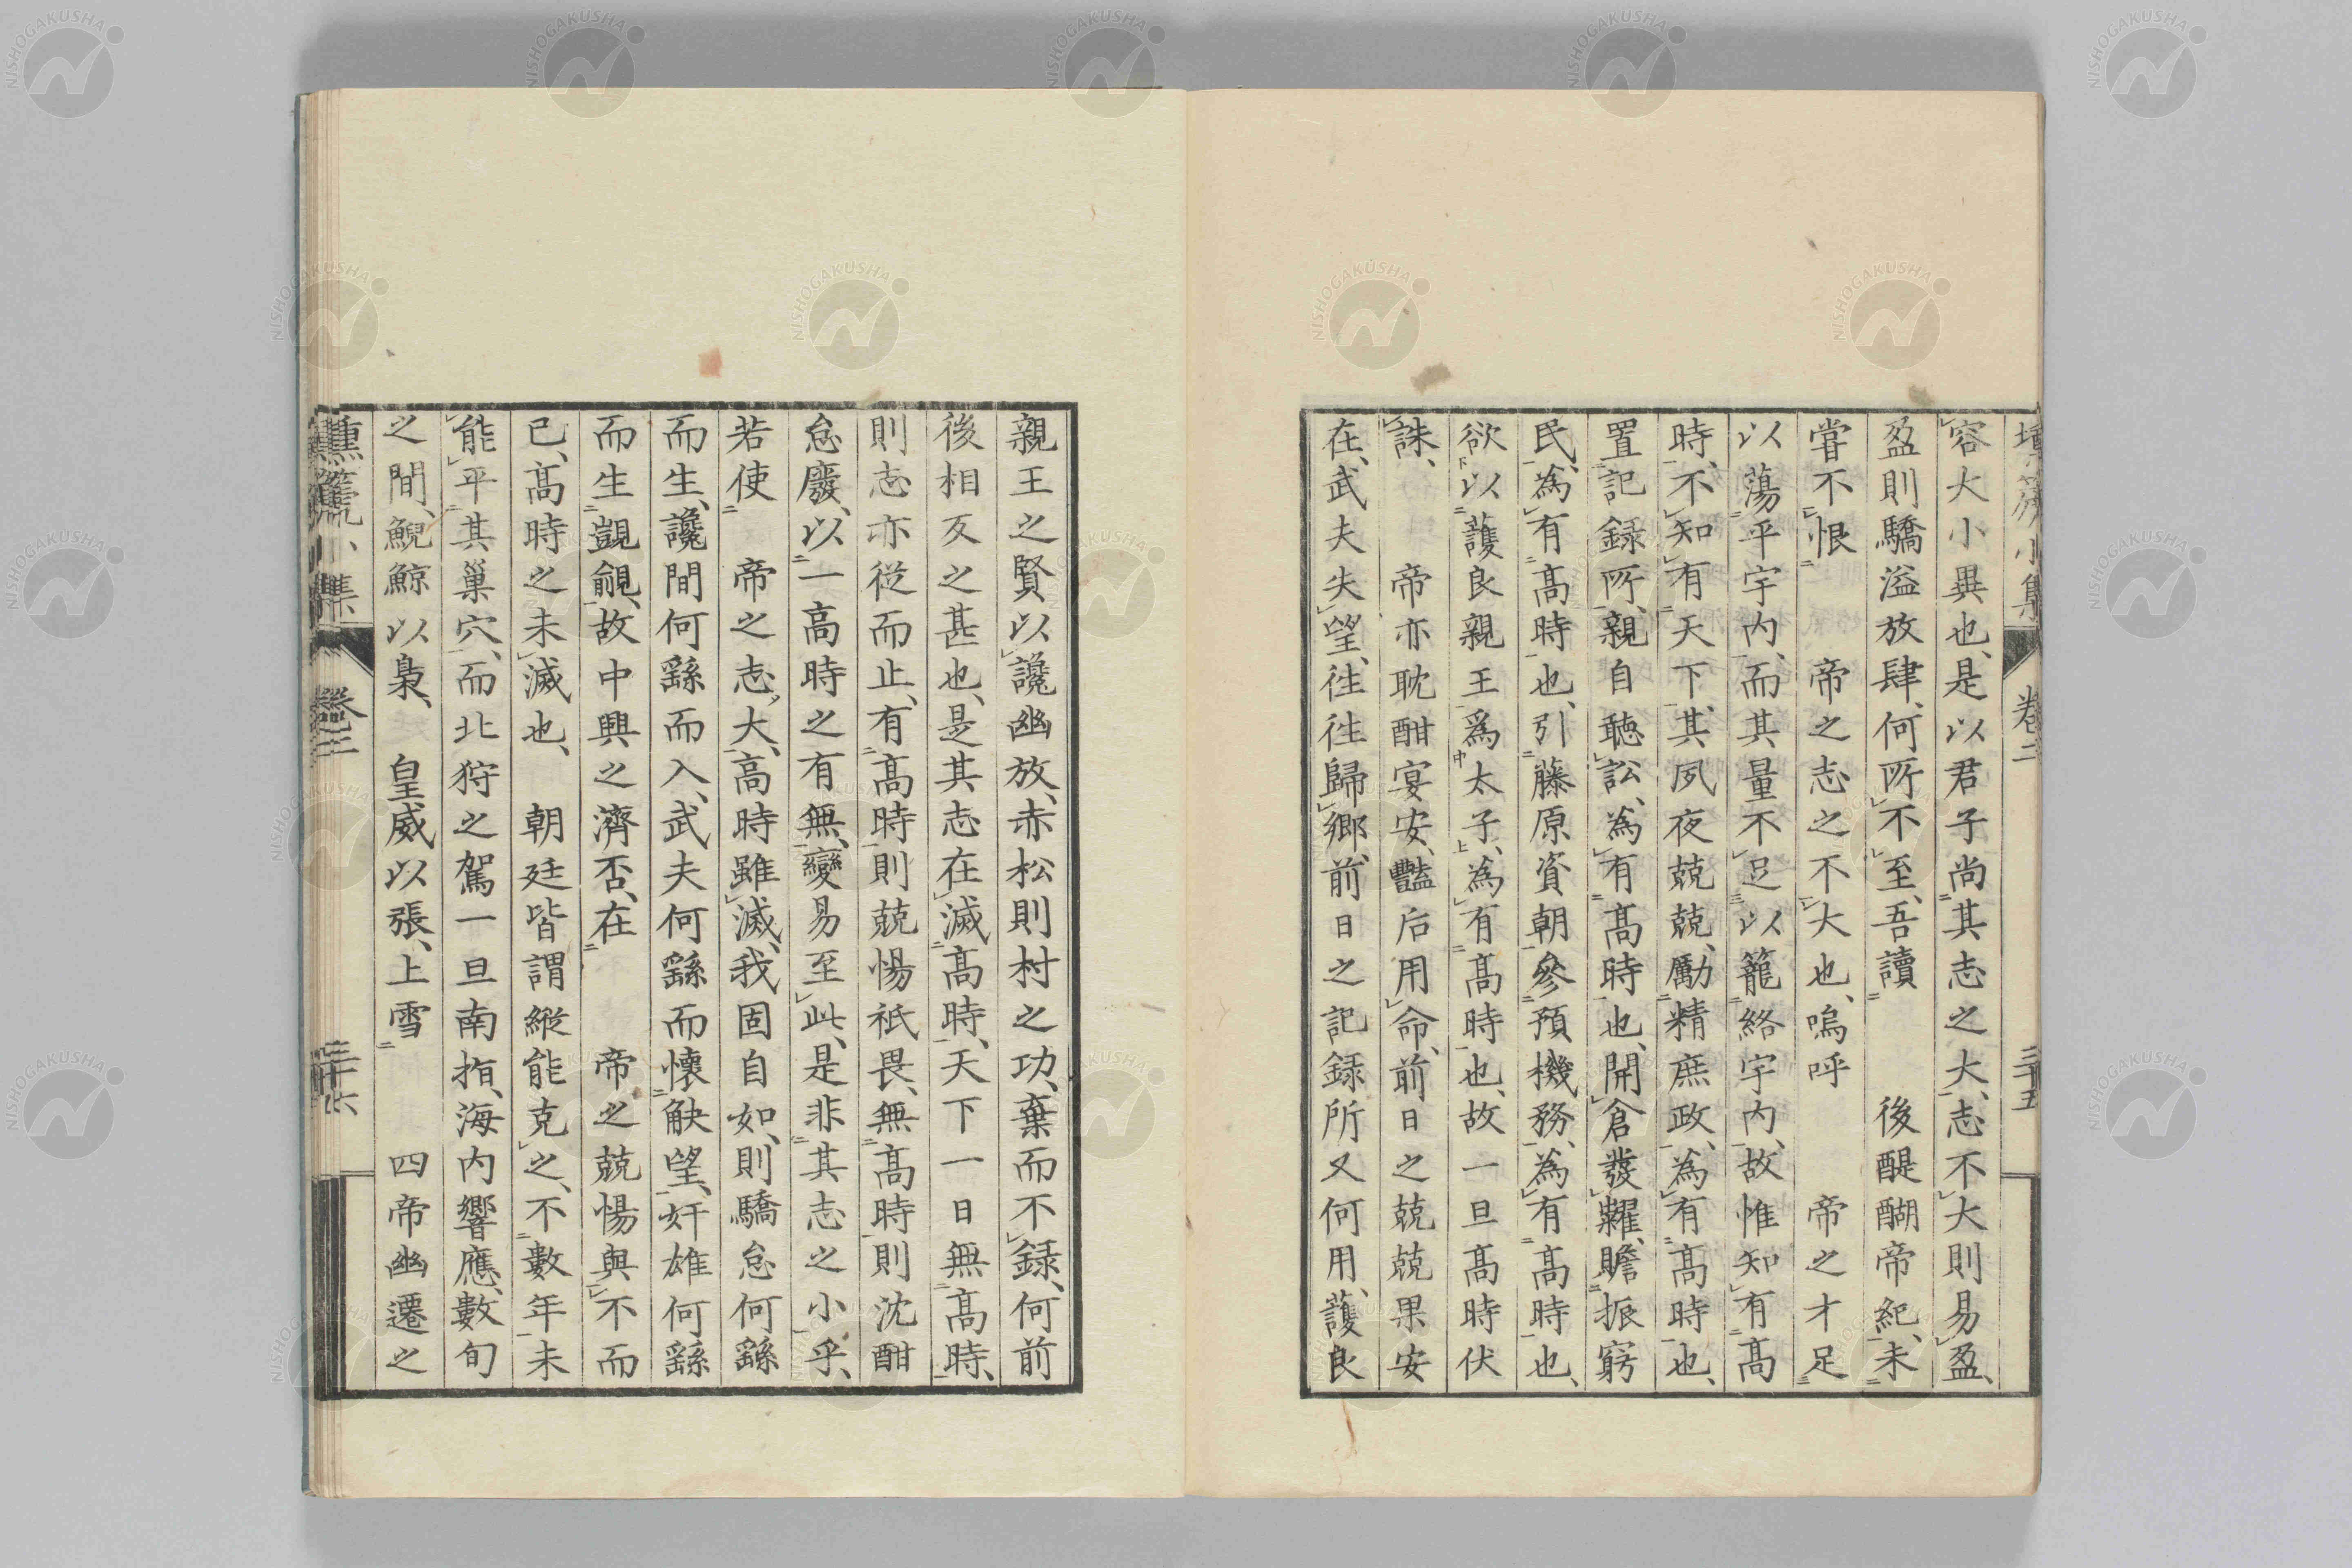 容大小異也、是以君子尚其志之大、志不大則易盈、
盈則驕溢放肆、何所不至、吾讀 後醍醐帝紀、未
嘗不恨 帝之志之不大也、嗚呼 帝之才足
以蕩平宇内、而其量不足以籠絡宇内、故惟知有髙
時、不知有天下、其夙夜兢兢、勵精庶政、為有髙時也、
置記録所、親自聽訟、為有髙時也、開倉發糶、贍振窮
民、為有髙時也、引藤原資朝參預機務、為有髙時也、
欲以護良親王爲太子、為有髙時也、故一旦髙時伏
誅、 帝亦耽酣宴安、豔后用命、前日之兢兢果安
在、武夫失望、徃徃歸鄉、前日之記録所又何用、護良
親王之賢以讒幽放、赤松則村之功、棄而不録、何前
後相反之甚也、是其志在滅髙時、天下一日無髙時、
則志亦従而止、有髙時則兢惕祇畏、無髙時則沈酣
怠廢、以一高時之有無、變易至此、是非其志之小乎、
若使 帝之志大、高時雖滅、我固自如、則驕怠何繇
而生、讒間何繇而入、武夫何繇而懷觖望、奸雄何繇
而生覬覦、故中興之濟否、在 帝之兢惕與不而
已、髙時之未滅也、 朝廷皆謂縱能克之、不數年未
能平其巢穴、而北狩之駕一旦南指、海内響應、數旬
之間、鯢鯨以梟、 皇威以張、上雪 四帝幽遷之
卷二
三十五